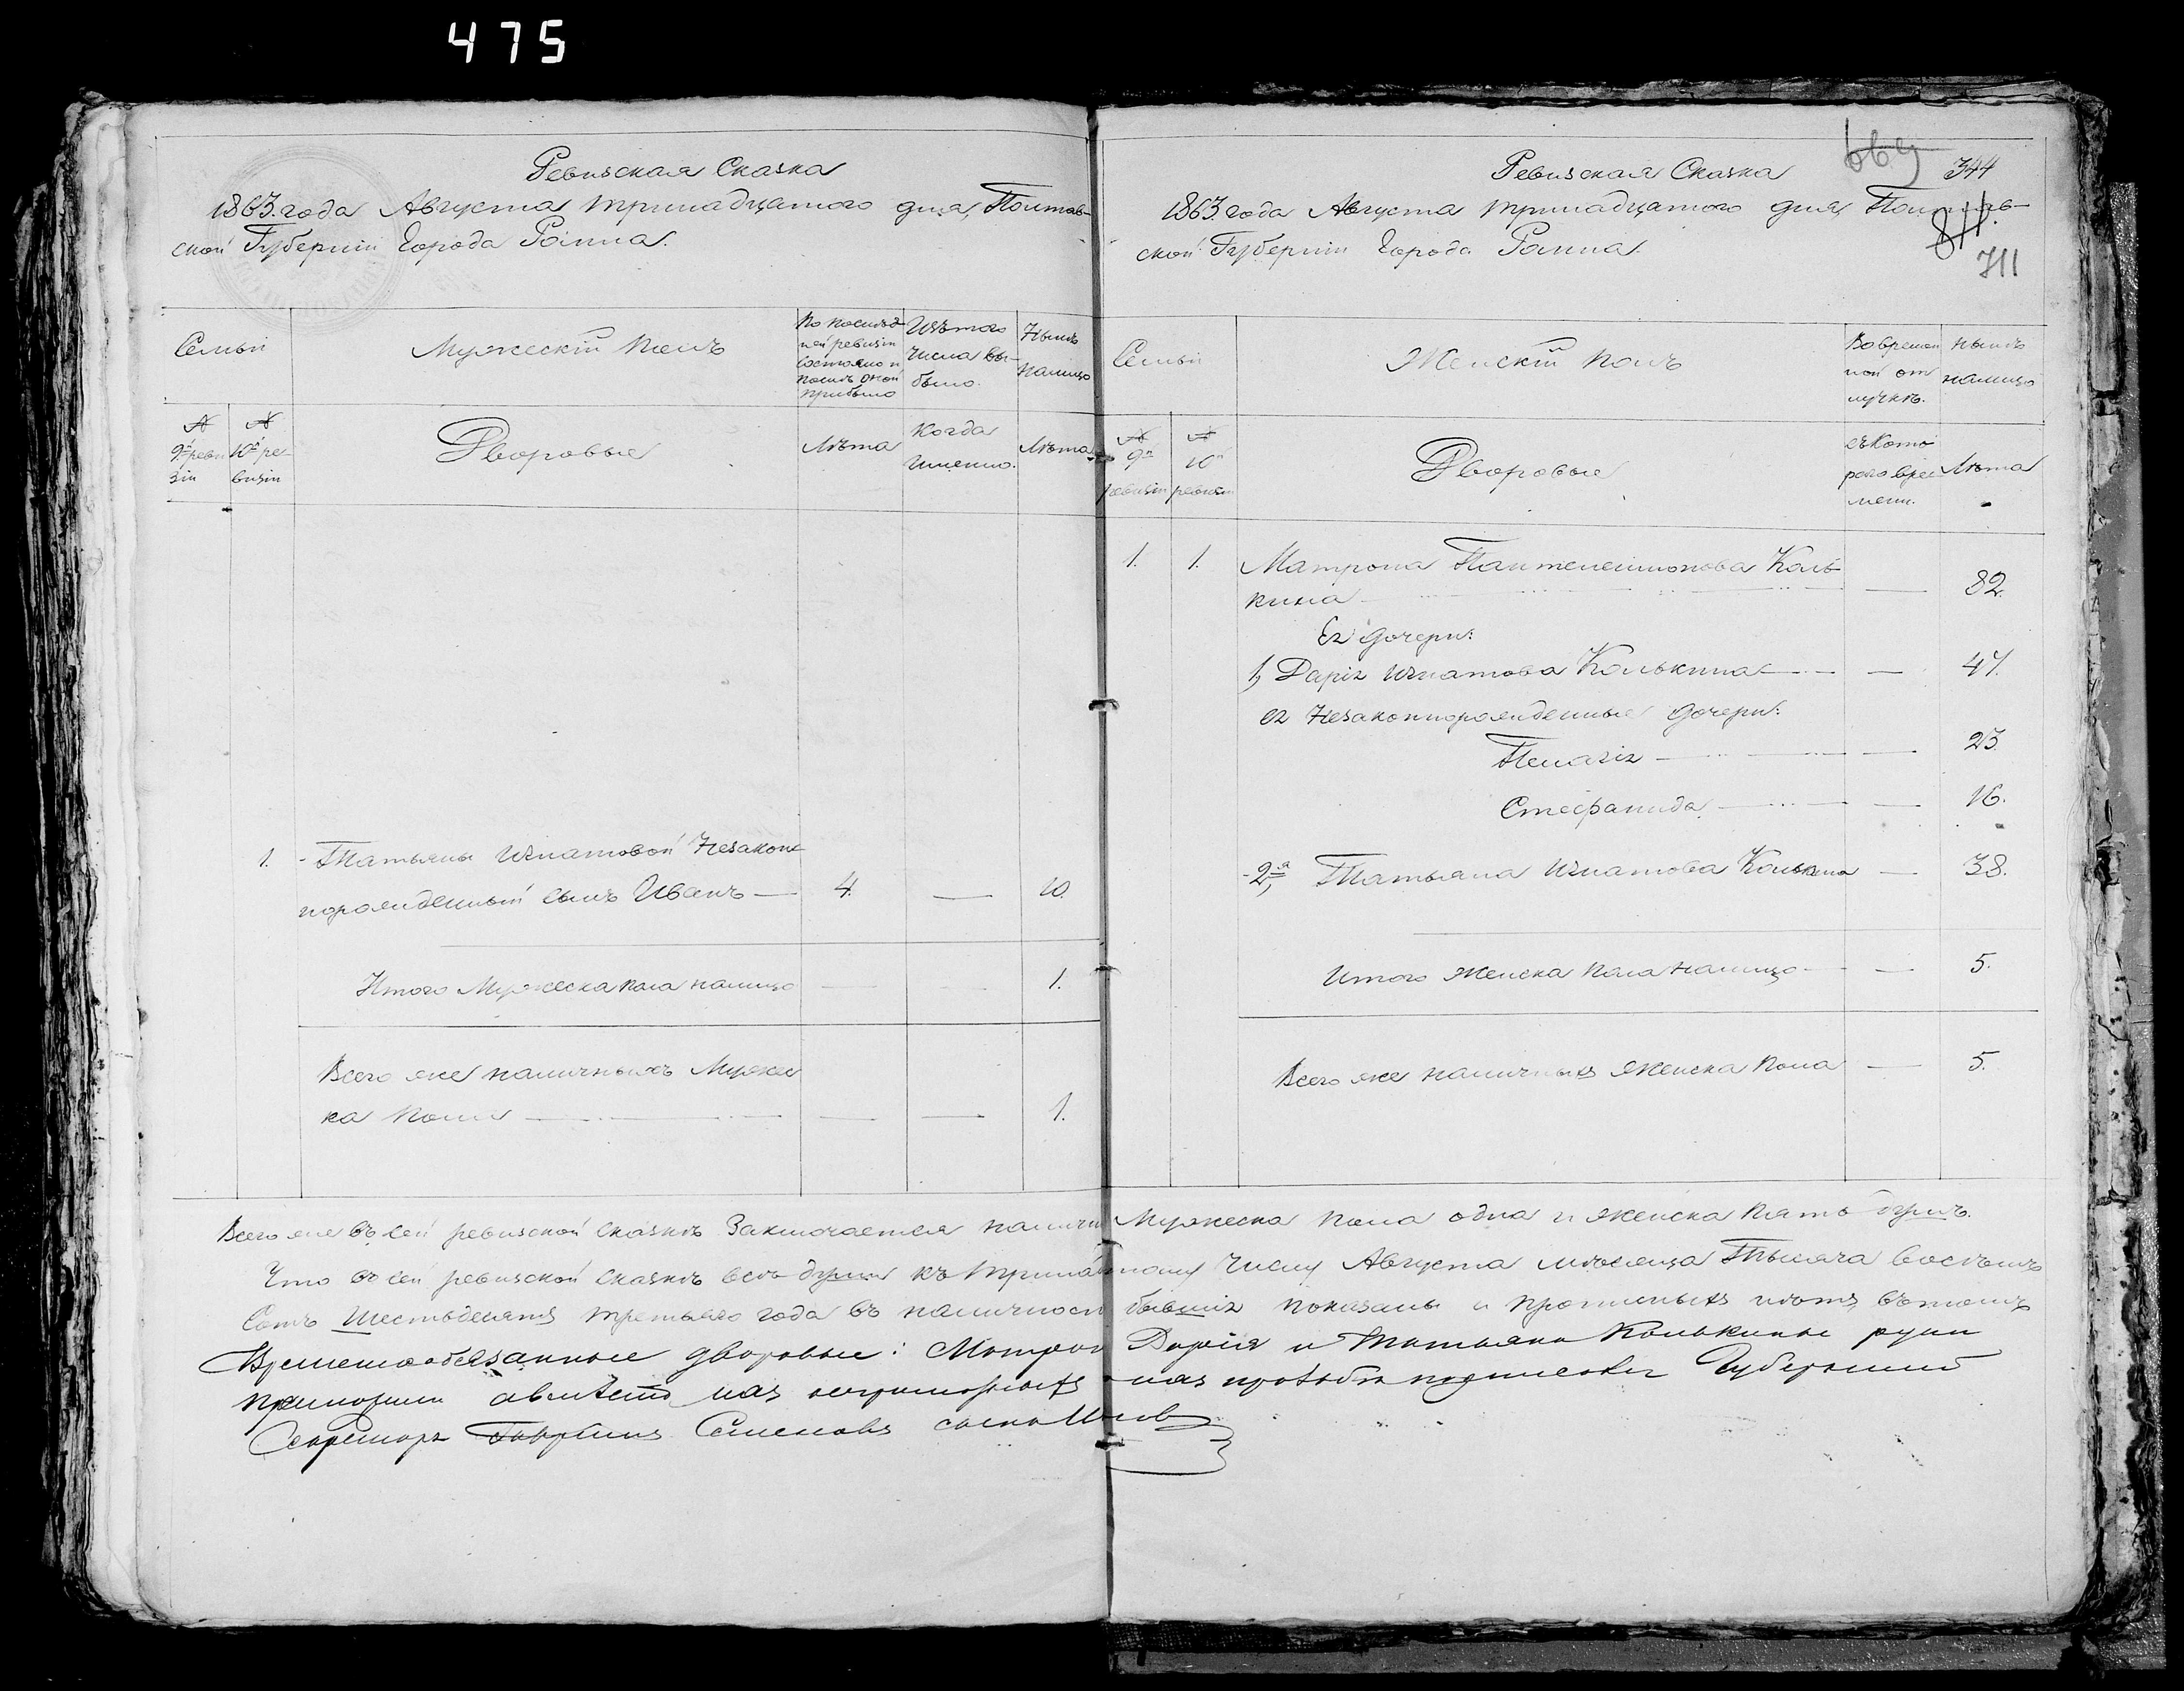 475
Ревизская Сказка
1863. года Августа тринадцатого дня, Полтав-
ской Губерніи Города Ромна.
Семьи
Мужескій полъ
По послѣд-
ней ревизіи
состояло и
послѣ оной
прибыло
Изъ того
числа вы-
было.
Нынѣ
налицо
№
9й реви
зіи
№
10й ре
визіи
Дворовые
Лѣта
Когда
именно.
Лѣта
1. Татьяны Игнатовой Незакон
норожденный сынъ Иванъ — 4. — 10.
Итого Мужеска пола налицо — — 1.
Всего же наличныхъ Мужес
ка пола — — — 1.
Ревизская Сказка
669
344
1863. года Августа тринадцатого дня, Полтав-
ской Губерніи Города Ромна.
811.
711
Семьи
Женскій полъ
Во времен
ной от
лучкѣ.
нынѣ
налицо
№
9я
ревизіи
№
10я
ревизіи
Дворовые
съ кото
раго вре
мени.
Лѣта
1. 1. Матрона Пантелеимонова Коль-
кина — — 82.
Ея дочери:
1, Дарія Игнатова Колькина — — 47.
ея Незаконнорожденные дочери:
Пелагія — — 23.
Стефанида — — 16.
2,я Татьяна Игнатова Колькина — 38.
Итого женска пола налицо — — 5.
Всего же наличныхъ женска пола — 5.
Всего же въ сей ревизской сказкѣ Заключается налични Мужеска пола одна и женска пять душъ.
Что въ сей ревизской сказкѣ всѣ души къ тринад тому числу Августа мѣсяца Тысяча восѣмъ
Сотъ Шестьдесятъ третьяго года въ наличност бывшія показаны и прописныхъ нѣтъ, въ томъ
Временнообязанные дворовые: Матрон Дарія и Татьяна Колькины руки
приложили а вмѣсто ихъ неграмотныхъ по ихъ прозбѣ подписался Губернскій
Секретарь Гавріилъ Семеновъ сынъ